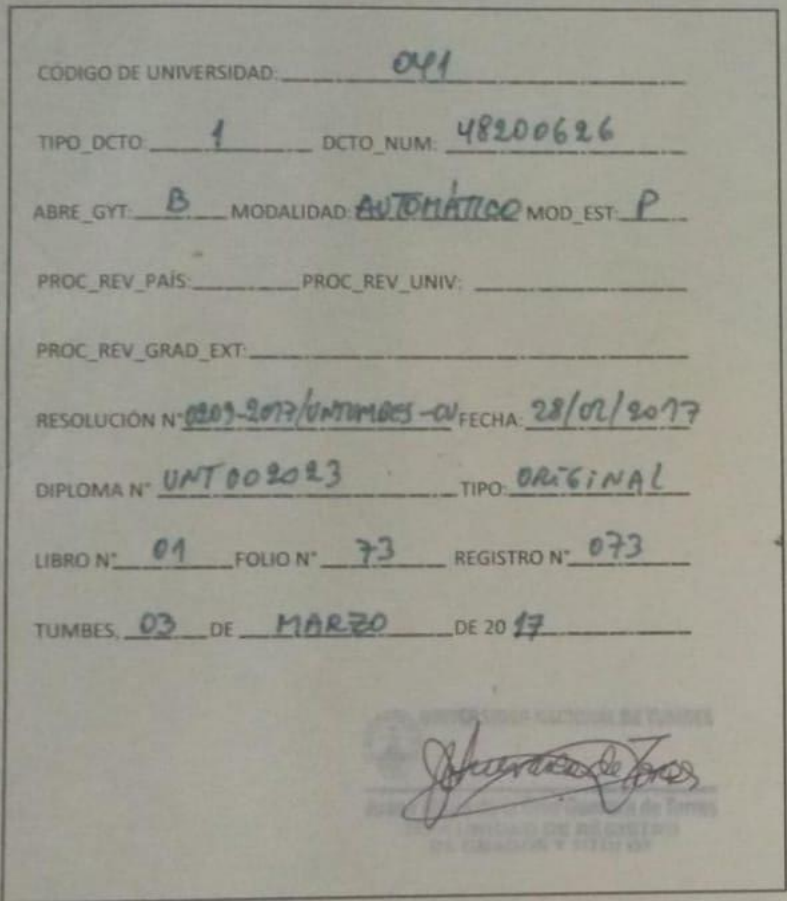 CÓDIGO DE UNIVERSIDAD: 041
TIPO_DCTO: 1 DCTO_NUM: 48200626
ABRE_GYT: B MODALIDAD: AUTOMÁTICO MOD_EST: P
PROC_REV_PAÍS: PROC_REV_UNIV:
PROC_REV_GRAD_EXT:
RESOLUCIÓN N° 0209-2017/UNTUMBES-CU FECHA: 28/02/2017
DIPLOMA N° UNT002023 TIPO: ORIGINAL
LIBRO N° 01 FOLIO N° 73 REGISTRO N° 073
TUMBES, 03 DE MARZO DE 2017
UNIVERSIDAD NACIONAL DE TUMBES
de Torres
UNIDAD DE REGISTRO
DE GRADOS Y TITULOS